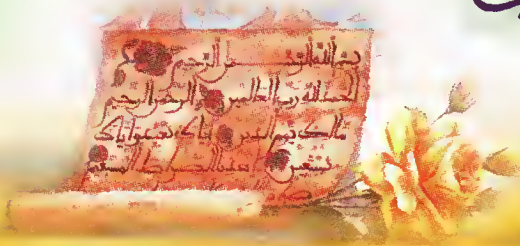 بسم الله الرحمن الرحيم
الحمد لله رب العالمين الرحمن الرحيم
مالك يوم الدين اياك نعبد واياك
نستعين اهدنا الصراط المستقيم